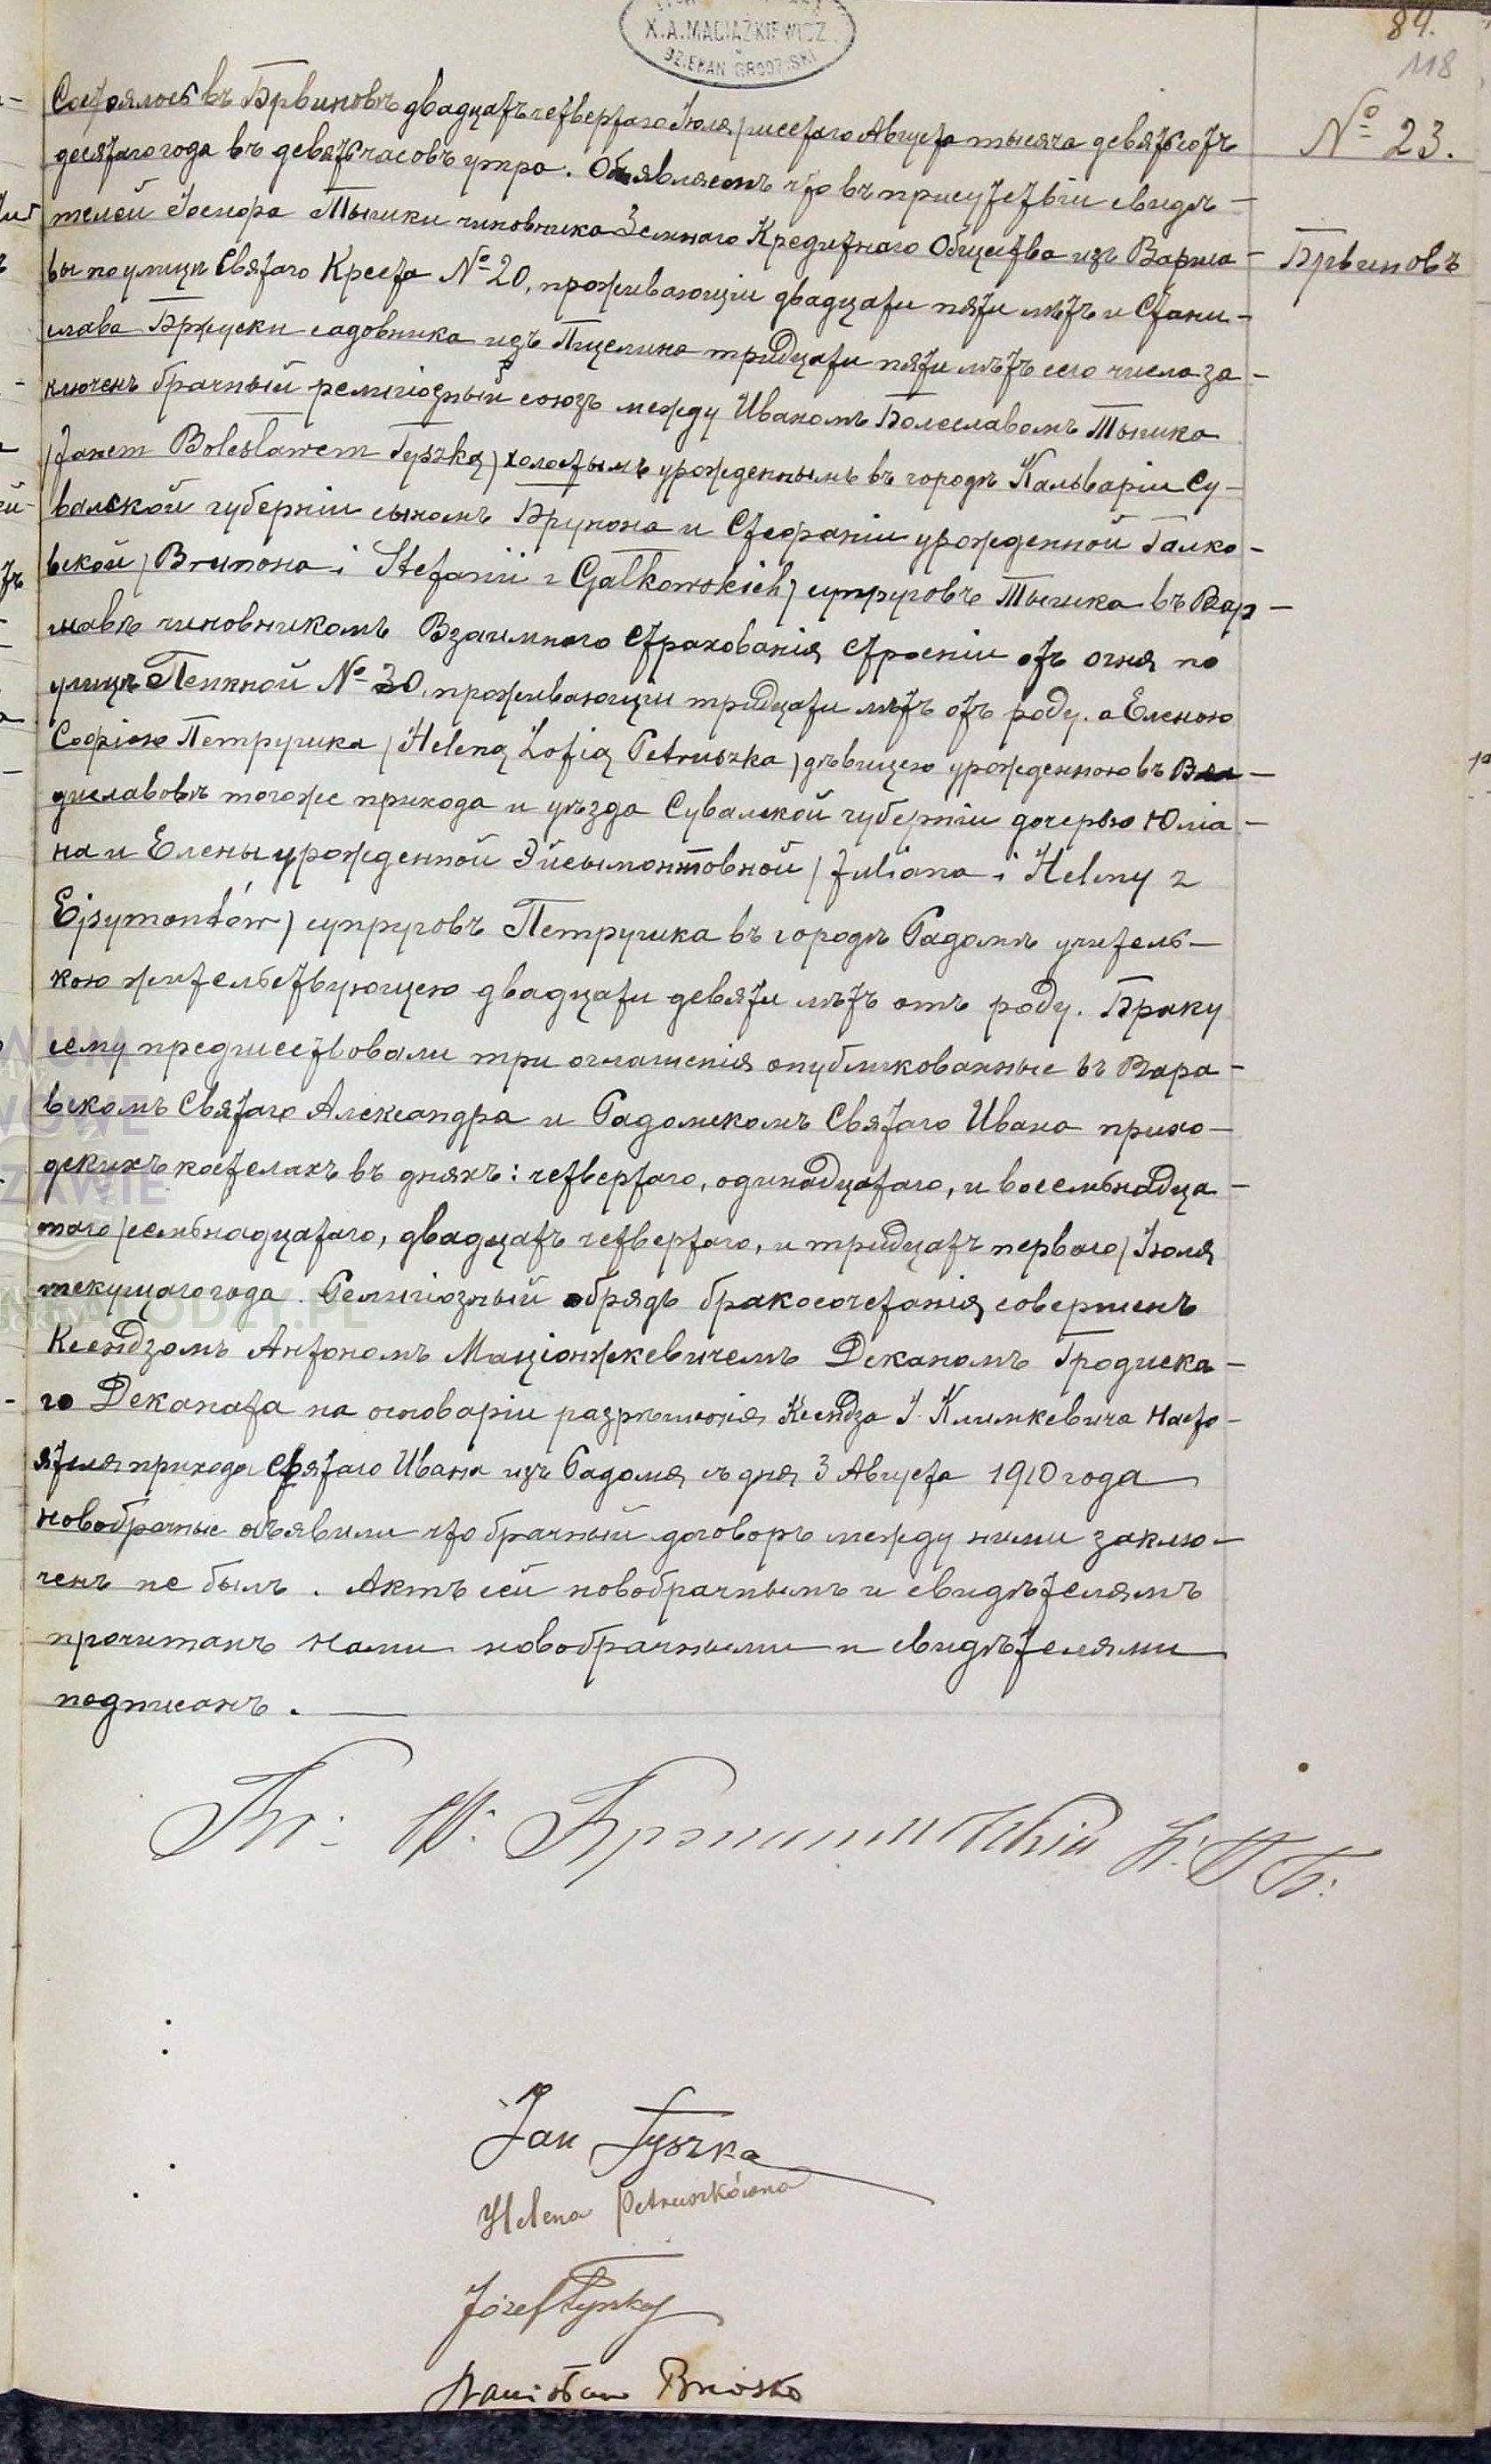 X.A.MACIĄŻKIEWICZ
DZIEKAN GRODZISKI
84.
118
№ 23.
Брвиновъ
Состоялось въ Брвиновѣ двадцать четвертаго Іюля /шестаго Августа тысяча девятьсотъ
десятаго года въ девять часовъ утра. Объявляемъ что въ присутствіи свидѣ-
телей Іосифа Тышки чиновника Земнаго Кредитнаго Общества изъ Варша-
вы по улицѣ Святаго Креста № 20, проживающіи двадцати пяти лѣтъ и Стани-
слава Бржуски садовника изъ Пщелина тридцати пяти лѣтъ сего числа за-
ключенъ брачный религіозный союзъ между Иваномъ Болеславомъ Тышка
/Janem Bolesławem Tyszką/ холостымъ урожденнымъ въ городѣ Кальваріи Су-
валской губерніи сыномъ Брунона и Стефаніи урожденной Галко-
вской /Brunona i Stefanii z Gałkowskich/ супруговъ Тышка въ Вар-
шавѣ чиновникомъ Взаимнаго Страхованія Строеніи отъ огня по
улицѣ Пенкной № 30, проживающіи тридцати лѣтъ отъ роду. а Еленою
Софіею Петрушка /Heleną Zofią Petruszka/ дѣвицею урожденною въ Вла-
диславовѣ тогоже прихода и уѣзда Сувалской губерніи дочерью Юліа-
на и Елены урожденной Эйсымонтовной /Juliana i Heleny z
Ejsymontów/ супруговъ Петрушка въ городѣ Радомѣ учитель-
кою жительствующею двадцати девяти лѣтъ отъ роду. Браку
сему предшествовали три оглашенія опубликованные въ Варша-
вскомъ Святаго Александра и Радомскомъ Святаго Ивана прихо-
дскихъ костелахъ въ дняхъ: четвертаго, одинадцатаго, и восемьнадца-
таго /семьнадцатаго, двадцать четвертаго, и тридцать перваго/ Іюля
текущаго года. Религіозный обрядъ бракосочетанія совершенъ
Ксендзомъ Антономъ Маціонжкевичемъ Деканомъ Гродиска-
го Деканата на основаріи разрѣшенія Ксендза І. Климкевича Насто-
ятеля прихода Святаго Ивана изъ Радома съ дня 3 Августа 1910 года
новобрачные объявили что брачный договоръ между ними заклю-
ченъ не былъ. Актъ сей новобрачнымъ и свидѣтелямъ
прочитанъ Нами новобрачными и свидѣтелями
подписанъ.
Jan Tyszka
Helena Petruszkówna
Józef Tyszka
Stanisław Brzósko